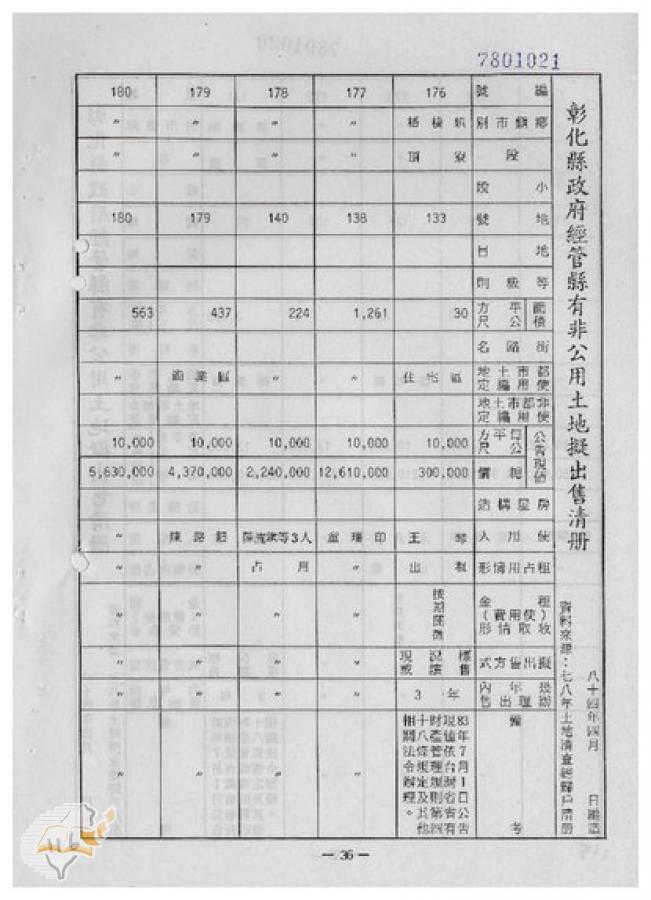 7801021
彰化縣政府經管縣有非公用土地擬出售清册
資料來源:七八年土地清查總歸戶清册
八十四年四月 日編造
編號 176 177 178 179 180
鄉鎮市別 〃 〃 〃 〃
段 頂寮 〃 〃 〃 〃
小段
地號 133 138 140 179 180
地目
等級則
面積 平方公尺 30 1,261 224 437 563
街路名
都市土地使用編定 住宅區 〃 〃 商業區 〃
非都市土地使用編定
公告現值 每平方公尺 10,000 10,000 10,000 10,000 10,000
總價 300,000 12,610,000 2,240,000 4,370,000 5,630,000
房屋構造
使用人 王 印 等3人 〃
租占用情形 出租 〃 占用 〃 〃
租金(使用費)收取情形 按期開徵 〃 〃 〃 〃
擬出售方式 現況標售或讓售 〃 〃 〃 〃
幾年內辦理出售 3年 〃 〃 〃 〃
備考 83年7月1日公告現值依台灣省省有財產管理規則第四十八條規定及其他相關法令辦理。 〃 〃 〃 〃
— 36 —
116